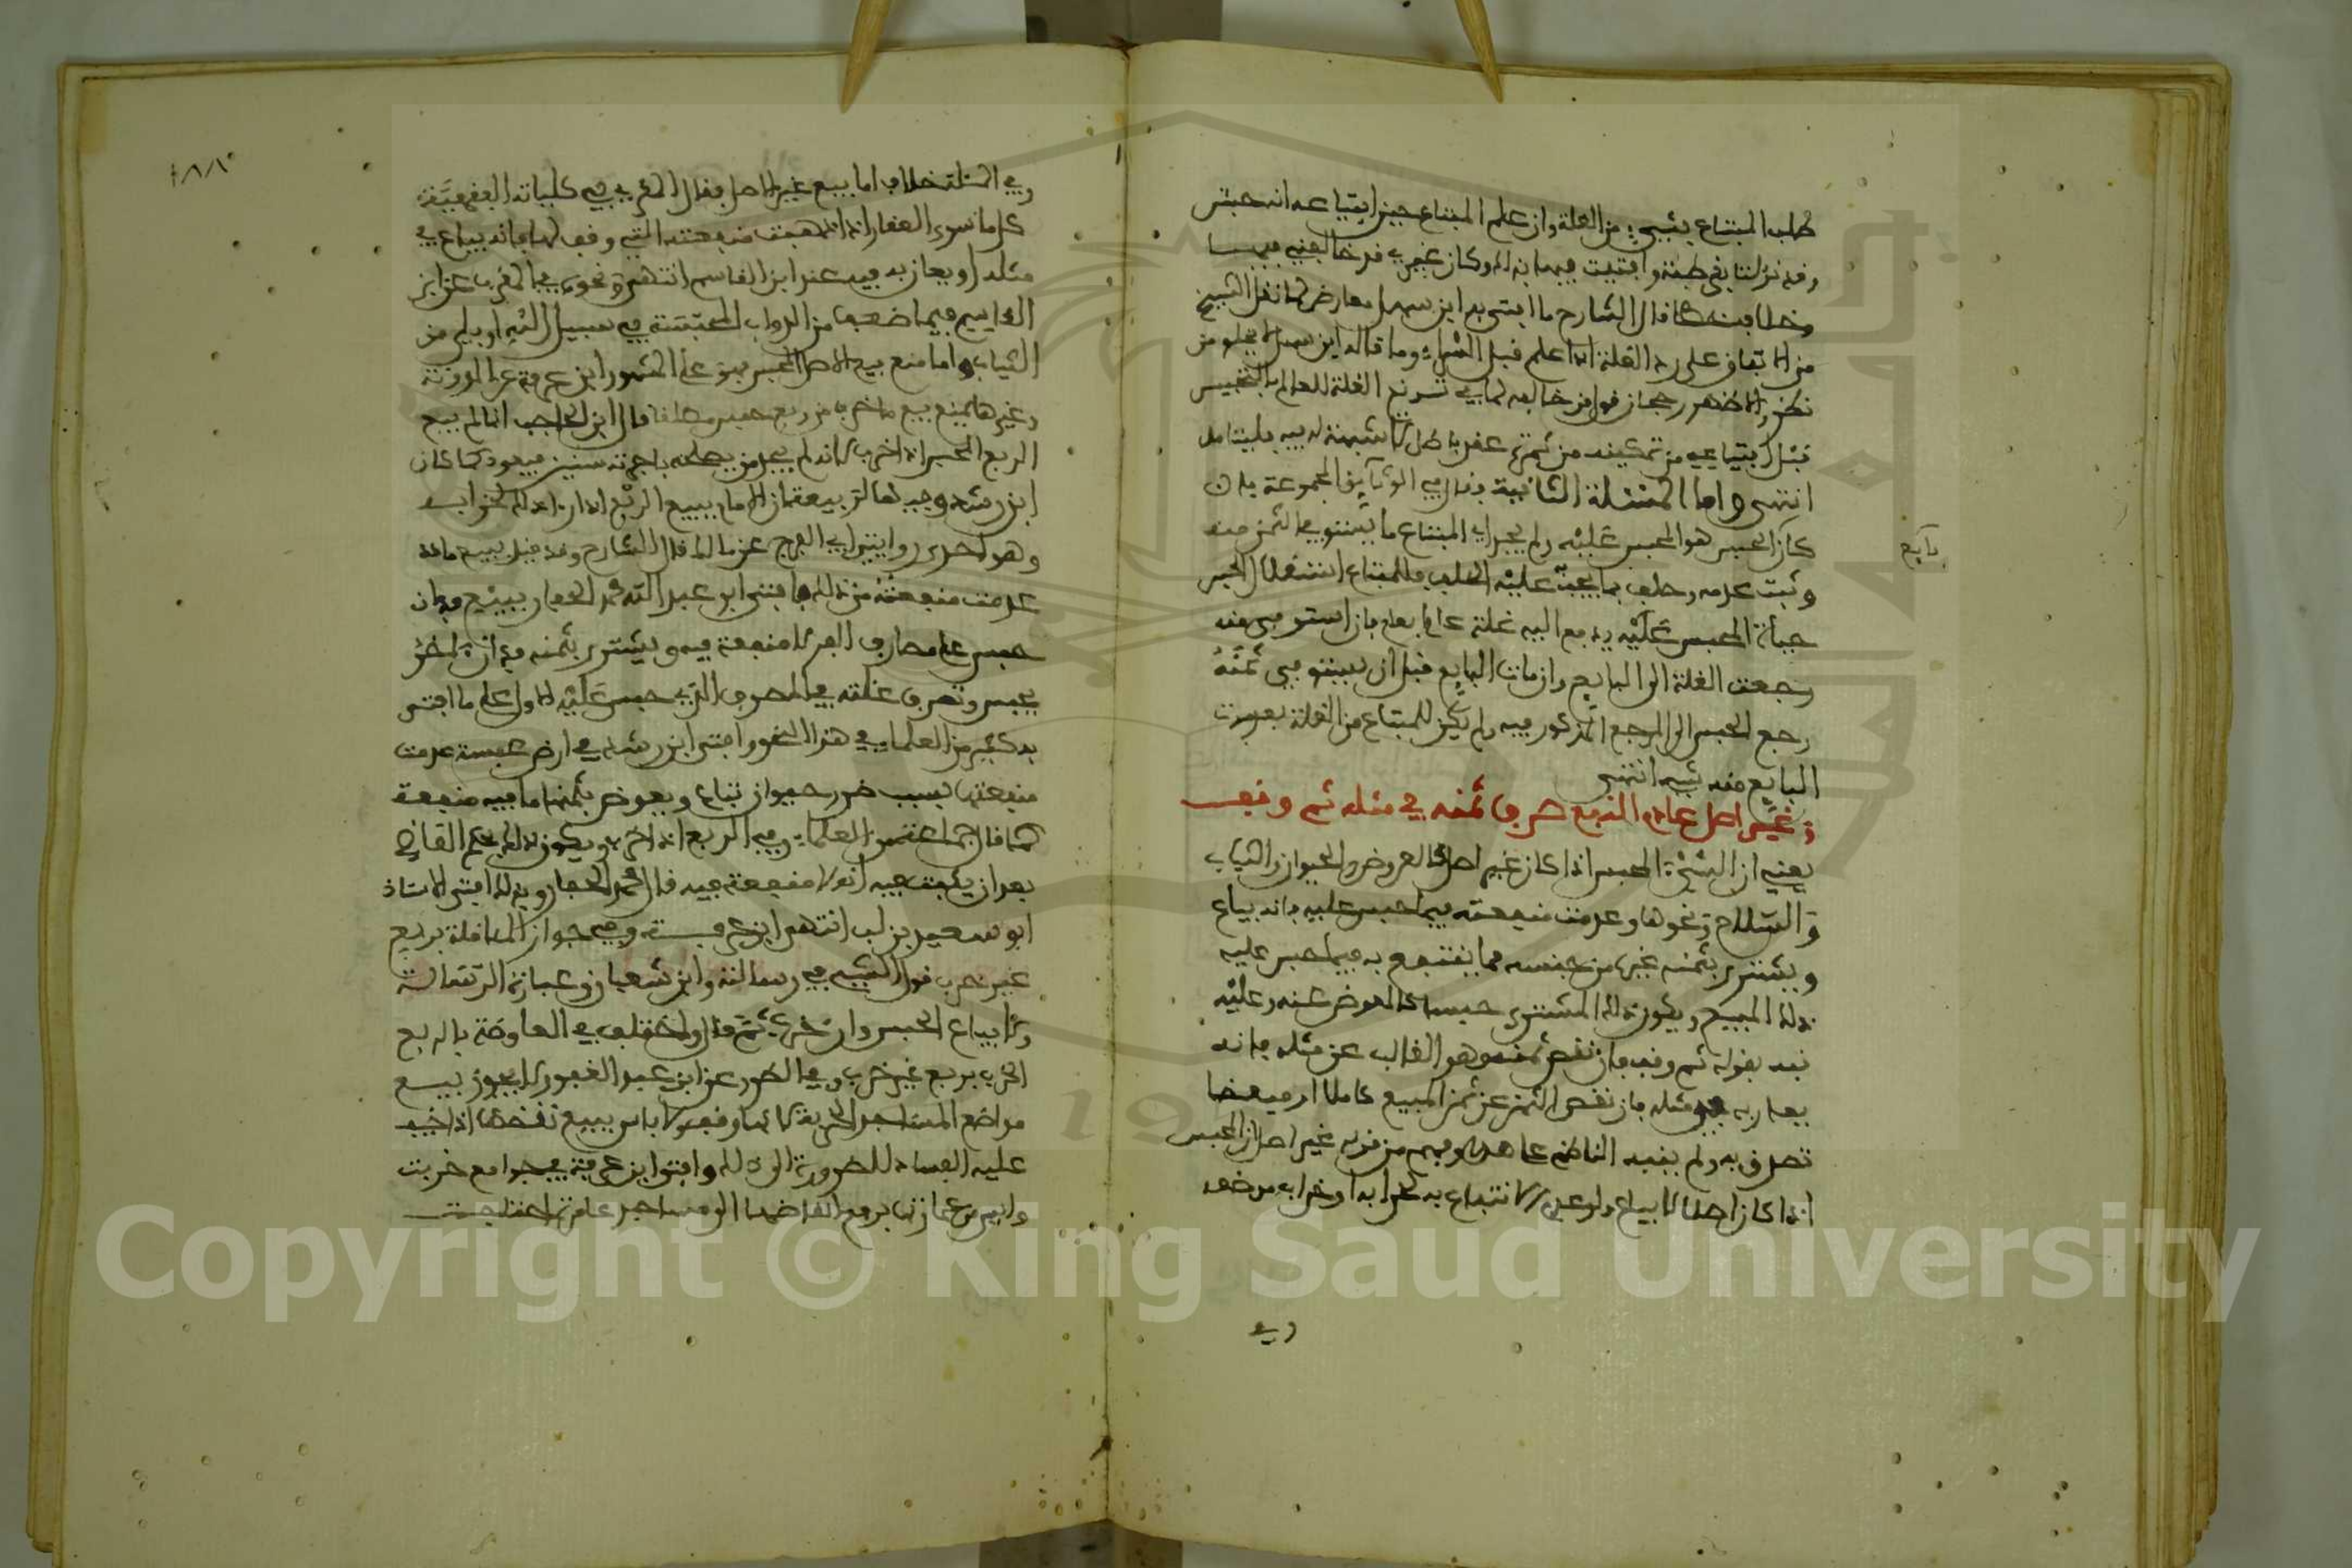 طلب المبتاع بشيء من الغلة وان علم المبتاع حين ابتياعه انه حبس
وقد نزلت بقرطبة وافتيت فيها بذلك وكان غيري قد خالفني فيها
وخلافه خطأ قال الشارح ما افتى به ابن سهل معارض لما نقل الشيخ
من الاتفاق على رد الغلة اذا علم قبل الشراء وما قاله ابن سهل لا يخلو من
نظر والاظهر رجحان قول من خالفه لما في تسويغ الغلة للعالم بالتحبيس
قبل ابتياعه من تمكينه من ثمرة عقد باطل لا شبهة له فيه فليتامل
انتهى واما المسئلة الثانية فقال في الوثائق المجموعة فان
كان المحبس هو المحبس عليه ولم يجد المبتاع ما يستوفي الثمن منه
وثبت عدمه وحلف بما يجب عليه الحلف فللمبتاع استغلال الحبس
حياة المحبس عليه يدفع اليه غلة عام بعام فان استوفى ثمنه
رجعت الغلة الى البايع وان مات البايع قبل ان يستوفي ثمنه
رجع الحبس الى المرجع المذكور فيه ولم يكن للمبتاع من الغلة بعد موت
البايع منه شيء انتهى
وغير اصل عادم النفع صرف ثمنه في مثله ثم وقف
يعني ان الشيء المحبس اذا كان غير اصل كالعروض والحيوان والثياب
والسلاح ونحوها وعدمت منفعته فيما حبس عليه فانه يباع
ويشترى بثمنه غيره من جنسه مما ينتفع به فيما حبس عليه
ذلك المبيع ويكون ذلك المشترى حبسا كالمعوض عنه وعليه
نبه بقوله ثم وقف فان نقص ثمنه وهو الغالب عن مثله فانه
يعان به في مثله فان نقص الثمن عن ثمن المبيع كاملا او بعضا
تصدق به ولم ينبه الناظم على هذا وفهم من قوله غير اصل ان الحبس
اذا كان اصلا لا يباع ولو عدم الانتفاع به لخرابه او خراب موضعه
وفي
بايع
١٨٨
وفي المسئلة خلاف اما بيع غير الاصل فقال المقري في كلياته الفقهية
كل ما سوى العقار اذا ذهبت منفعته التي وقف لها فانه يباع في
مثله او يعان به فيه عند ابن القاسم انتهى ونحوه في المقرب عن ابن
القاسم فيما ضعف من الدواب المحبسة في سبيل الله او بلي من
الثياب واما منع بيع الاصل المحبس فهو على المشهور ابن عرفة عن المدونة
وغيرها يمنع بيع ما خرب من ربع حبس مطلقا قال ابن الحاجب انما لم يبع
الربع المحبس اذا خرب لانه لم يجد من يصلحه باجرته سنين فيعود كما كان
ابن رشد وجيها لربيعة ان الامام يبيع الربع اذا راى ذلك لخرابه
وهو احدى روايتي ابي الفرج عن مالك قال الشارح وقد قيل ببيع ما قد
عدمت منفعته من ذلك فافتى ابو عبد الله محمد الحفار ببيع فدان
حبس على مصارف البر لا منفعة فيه ويشترى بثمنه فدان اخر
يحبس وتصرف غلته في المصرف الذي حبس عليه الاول على ما افتى
به كثير من العلماء في هذا النحو وافتى ابن رشد في ارض محبسة عدمت
منفعتها بسبب ضرر حيوان تباع ويعوض بثمنها ما فيه منفعة
كما قال جماعة من العلماء في الربع اذا خرب ويكون ذلك بحكم القاضي
بعد ان يثبت عنده انه لا منفعة فيه قال محمد الحفار وبذلك افتى الاستاذ
ابو سعيد بن لب انتهى ابن عرفة وفي جواز المناقلة بربع
غير خرب قول الشيخ في رسالته وابن شعبان وعبارة الرسالة
ولا يباع الحبس وان خرب ثم قال واختلف في المعاوضة بالربع
الخرب بربع غير خرب وفي الطرر عن ابن عبد الغفور لا يجوز بيع
مواضع المساجد الخربة لانها وقف ولا باس ببيع نقضها اذا خيف
عليه الفساد للضرورة الى ذلك وافتى ابن عرفة في جوامع خربت
وايس من عمارتها برفع انقاضها الى مساجد عامرة احتاجت
Copyright © King Saud University